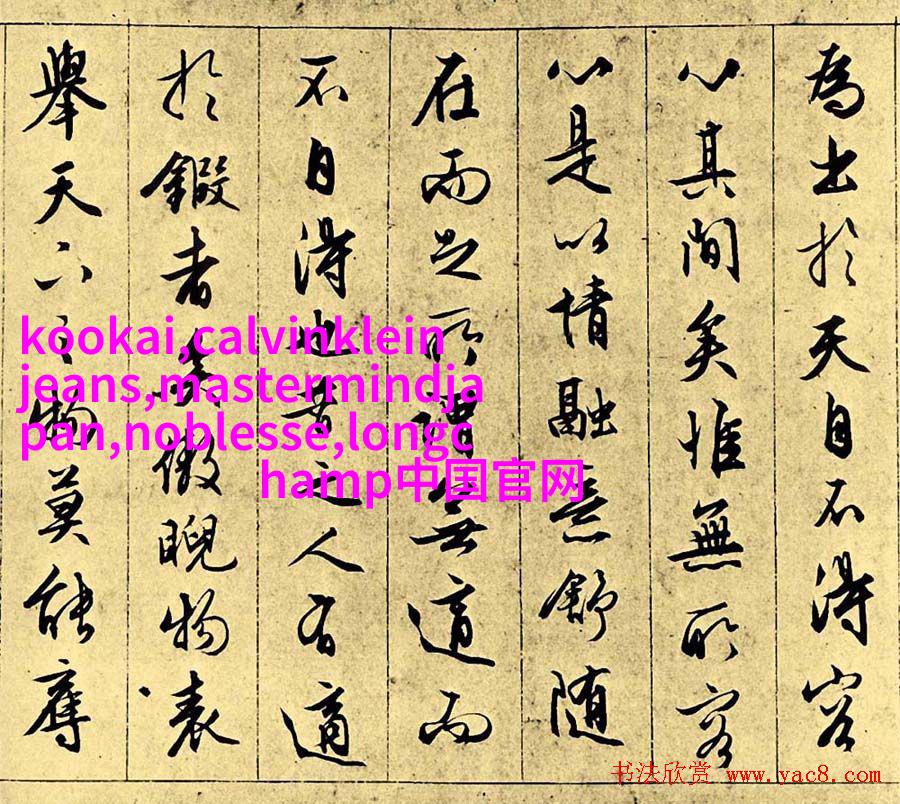 為出於天自不得容
心其間矣惟無所容
心是以情融意舒随
在而足所謂無適而
不自得也昔之人有適
於鍜者矣傲睨物表
舉天下之物莫能奪
kookai,calvinklein
jeans,mastermindja
pan,noblesse,longc
hamp中国官网
书法欣赏 www.yac8.com